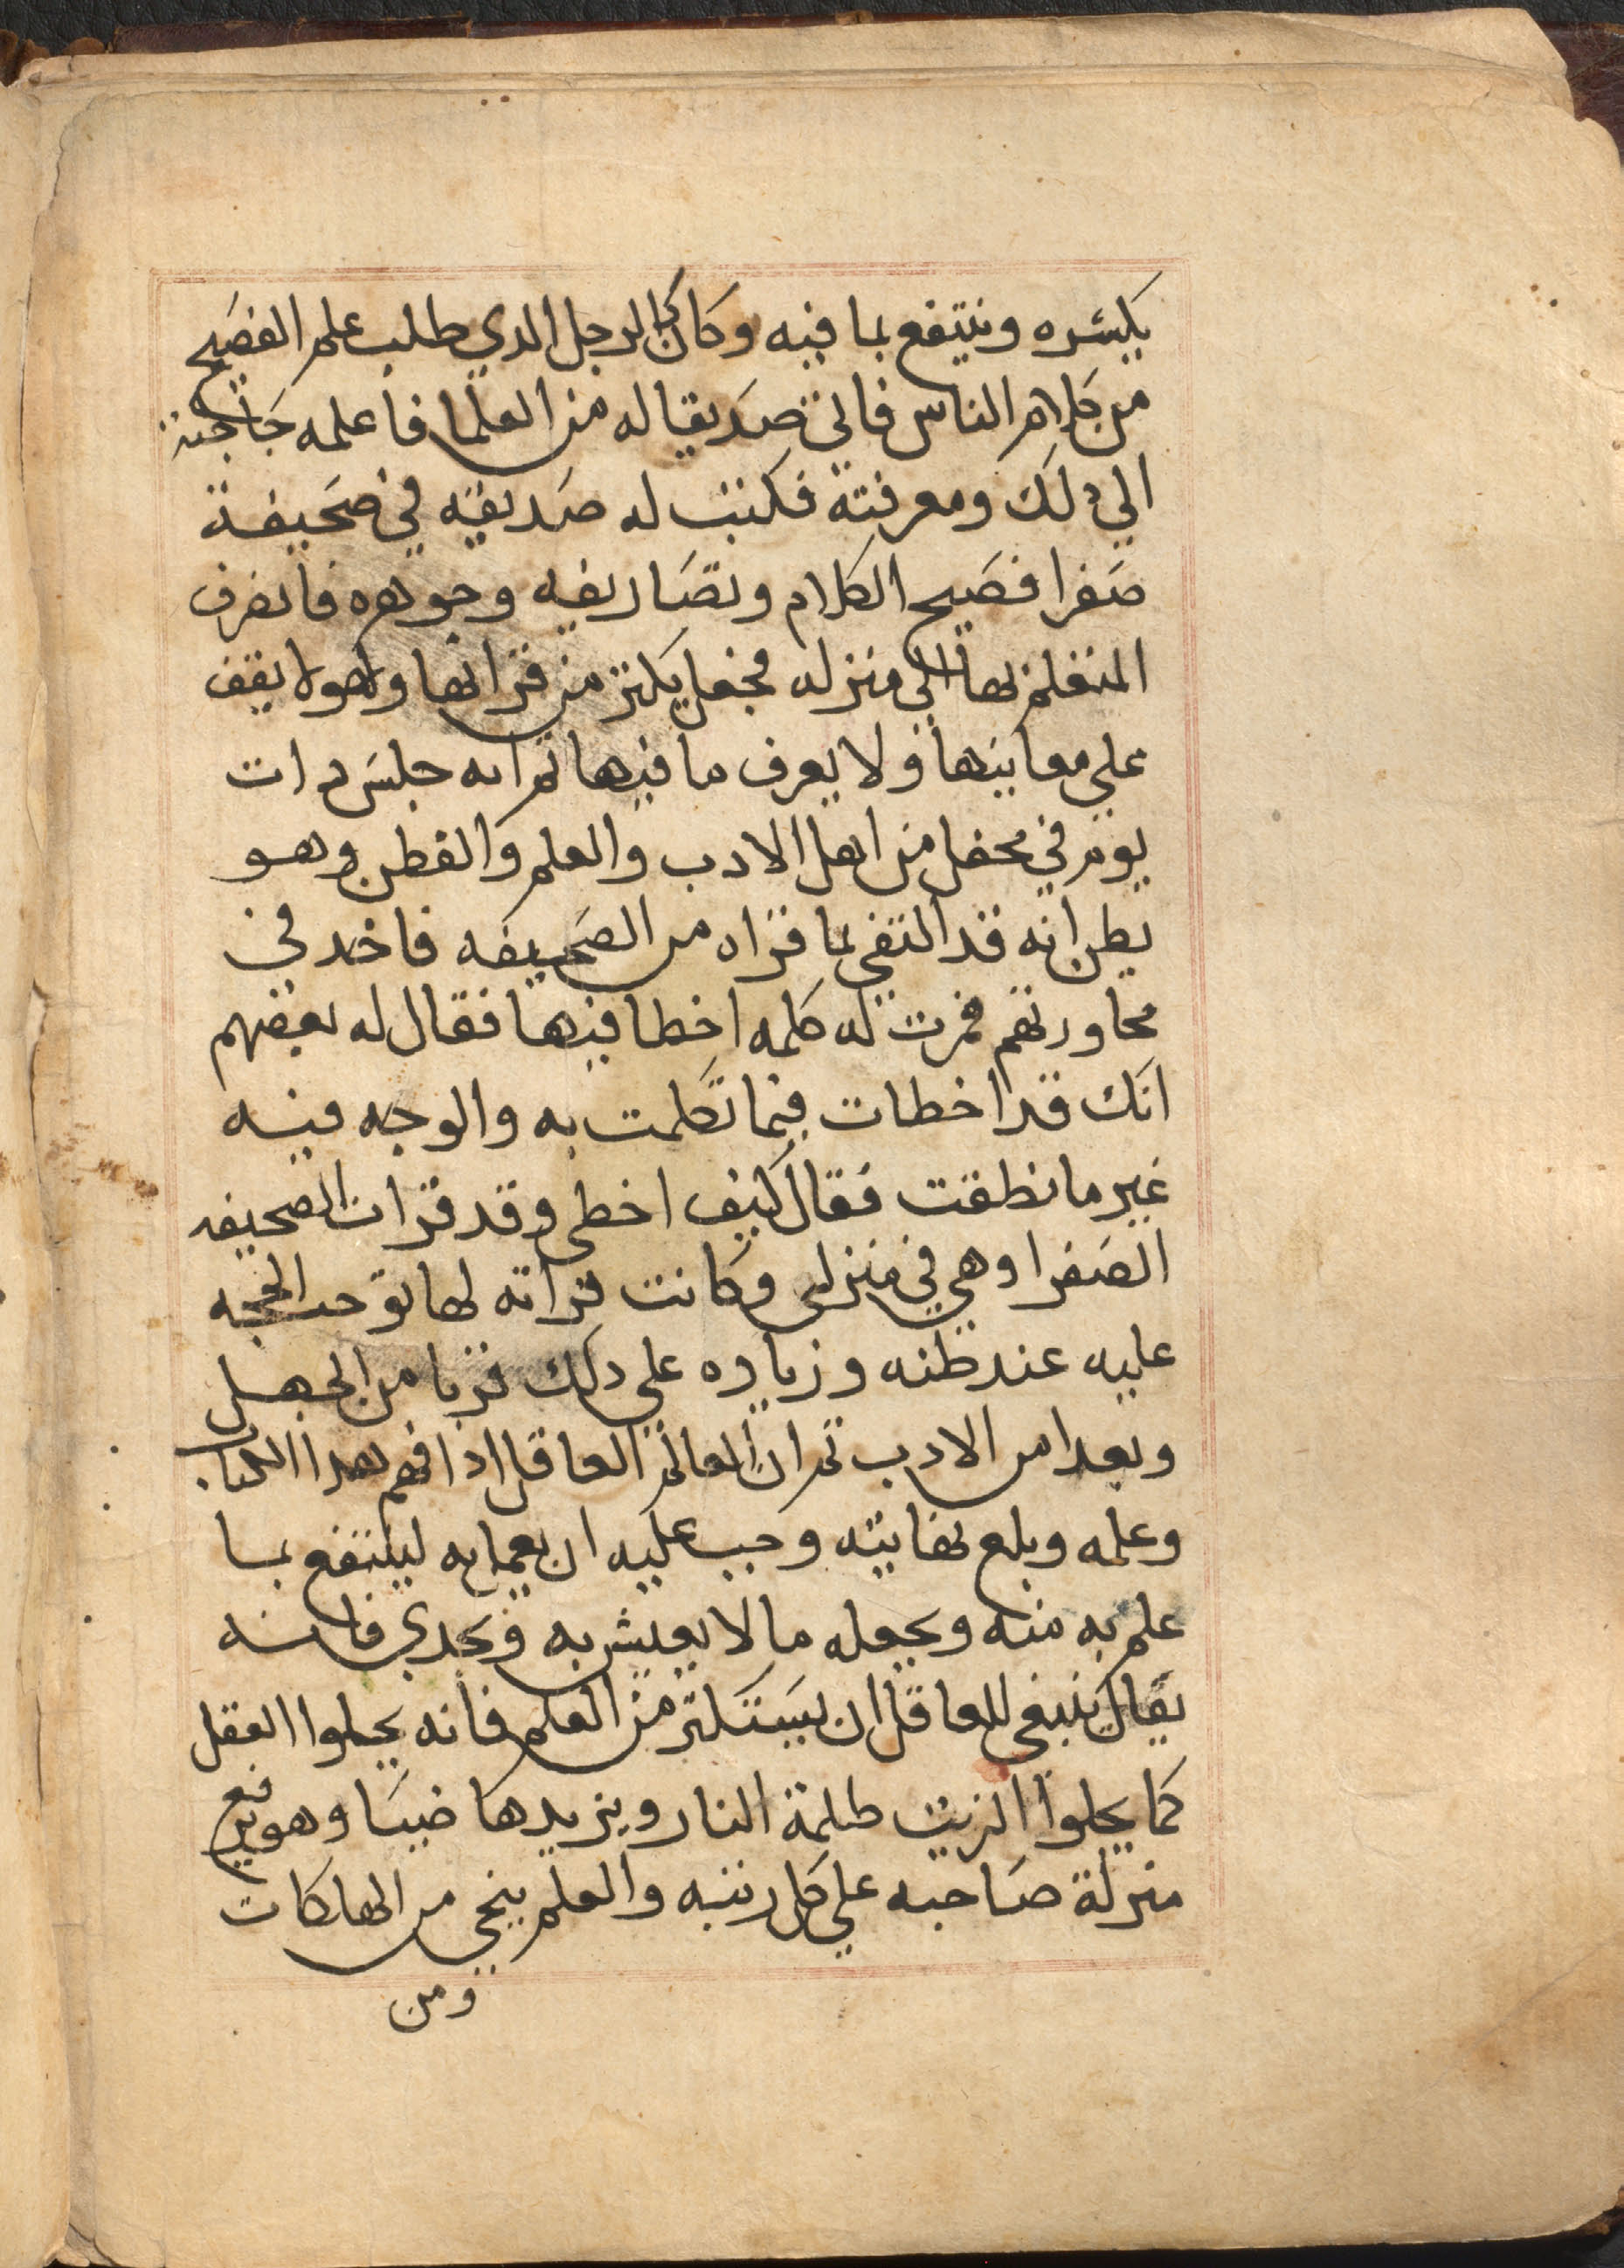 يكسره وينتفع بما فيه وكان كالرجل الدي طلب علم الفصيح
من كلام الناس فاتى صديقا له من العلما فاعلمه حاجته
الي دلك ومعرفته فكتب له صديقه في صحيفة
صفرا فصيح الكلام وتصاريفه وجوهره فانصرف
المتعلم بها الي منزله فجعل يكثر من قراتها وهو لا يقف
علي معانيها ولا يعرف ما فيها ثم انه جلس دات
يوم في محفل من اهل الادب والعلم والفطن وهو
يظن انه قد اكتفى بما قراه من الصحيفه فاخد في
محاورتهم فمرت له كلمه اخطا فيها فقال له بعضهم
انك قد اخطات فيما تكلمت به والوجه فيه
غير ما نطقت فقال كيف اخطى وقد قرات الصحيفه
الصفرا وهي في منزلى وكانت قراته لها توجب الحجه
عليه عند ظنه وزياده علي دلك قربا من الجهل
وبعدا من الادب ثم ان العالم العاقل ادا فهم هدا الكتاب
وعلمه وبلغ نهايته وجب عليه ان يعمل به لينتفع بما
علم به منه ويجعله ما لا يعيش به فانه
يقال ينبغي للعاقل ان يستكثر من العلم فانه يجلوا العقل
كما يجلوا الزيت ظلمة النار ويزيدها ضيا وهو يرفع
منزلة صاحبه علي كل رتبه والعلم ينجي من الهلكات
ومن